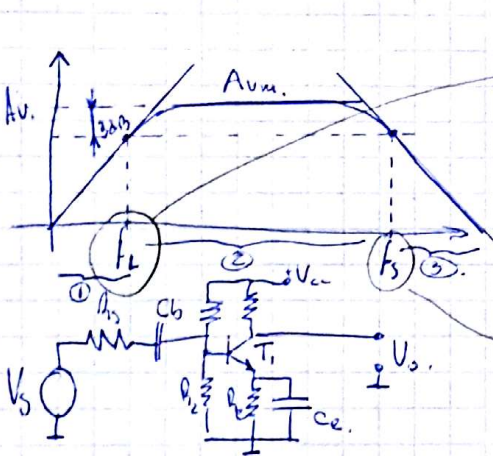 Av.
3dB
Avm.
fL
fs
① ② ③.
Rs Cb Vcc
Vs
T1
Vo.
R2 Re Ce.